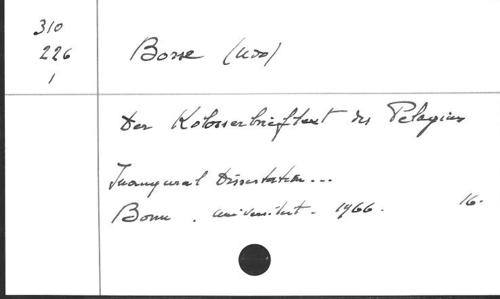 310
226 Borse (Udo)
1
Der Kolosserbrieftext des Pelagius
Inaugural Dissertation...
Bonn . Universität. 1966. 16.